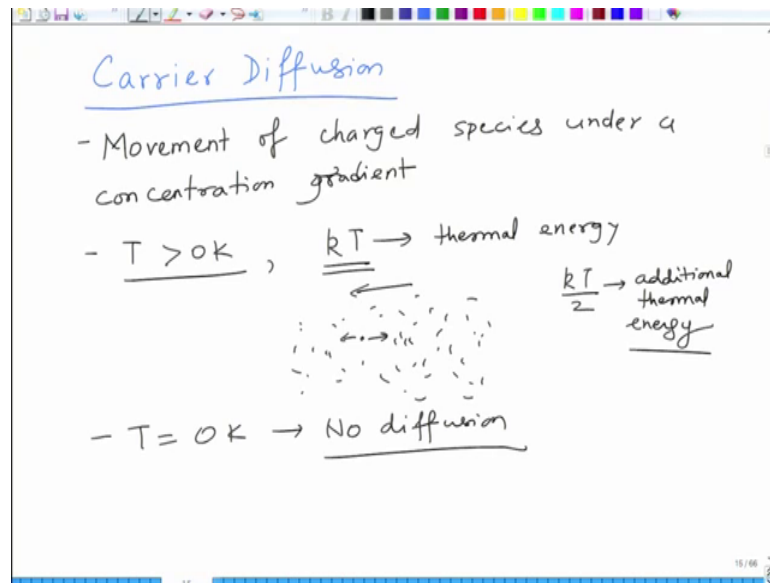 Carrier Diffusion
- Movement of charged species under a
concentration gradient
- T > 0K , kT → thermal energy
kT/2 → additional
thermal
energy
- T = 0K → No diffusion
15/66